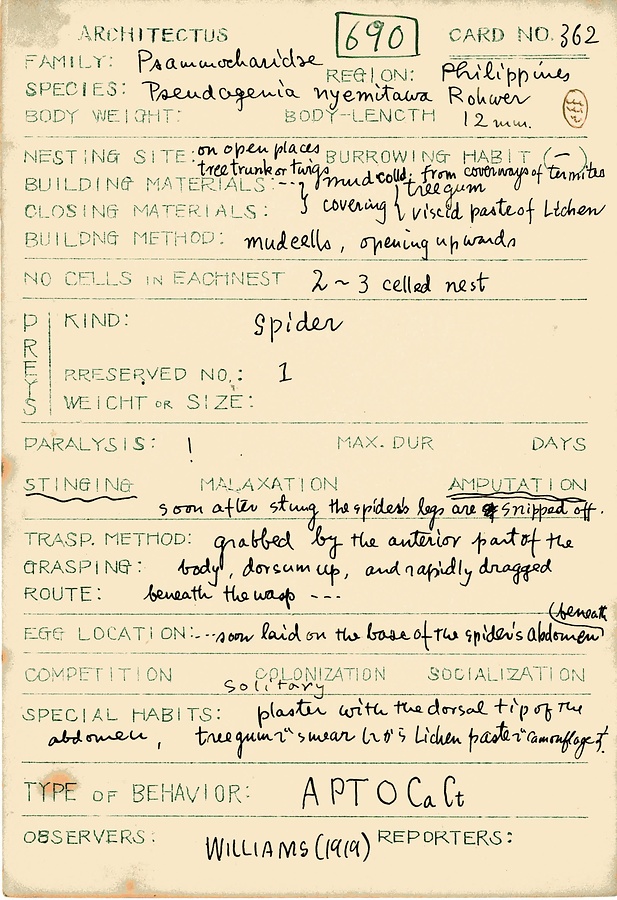 ARCHITECTUS 690 CARD NO. 362
FAMILY: Psammocharidse REGION: Philippines
SPECIES: Pseudagenia nyemitawa Rohwer
BODY WEIGHT: BODY-LENGTH 12 mm.
NESTING SITE: on open places BURROWING HABIT (—)
tree trunk or twigs
BUILDING MATERIALS: --- mud coll; from coverways of termites
tree gum
CLOSING MATERIALS: covering viscid paste of Lichen
BUILDNG METHOD: mud cells, opening upwards
NO CELLS IN EACHNEST 2 ~ 3 celled nest
PREYS
KIND: Spider
RRESERVED NO.: 1
WEIGHT OR SIZE:
PARALYSIS: ! MAX. DUR DAYS
STINGING MALAXATION AMPUTATION
soon after stung the spider's legs are snipped off.
TRASP. METHOD: grabbed by the anterior part of the
GRASPING: body, dorsum up, and rapidly dragged
ROUTE: beneath the wasp ---
(beneath
EGG LOCATION: --- soon laid on the base of the spider's abdomen
COMPETITION COLONIZATION SOCIALIZATION
Solitary
SPECIAL HABITS: plaster with the dorsal tip of the
abdomen, tree gum を smear しろう Lichen paste を camouflage す.
TYPE OF BEHAVIOR: A P T O Ca Ct
OBSERVERS: WILLIAMS (1919) REPORTERS: